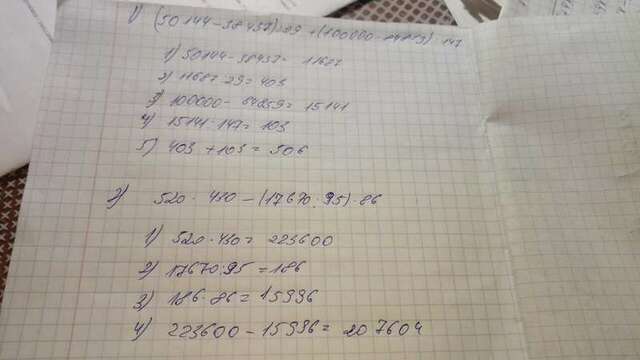 1) (50144-38457):29+(100000-84859):147
1) 50144-38457= 11687
2) 11687:29=403
3) 100000-84859= 15141
4) 15141:147=103
5) 403+103=506
2) 520·430-(17670:95)·86
1) 520·430=223600
2) 17670:95=186
3) 186·86=15996
4) 223600-15996=207604